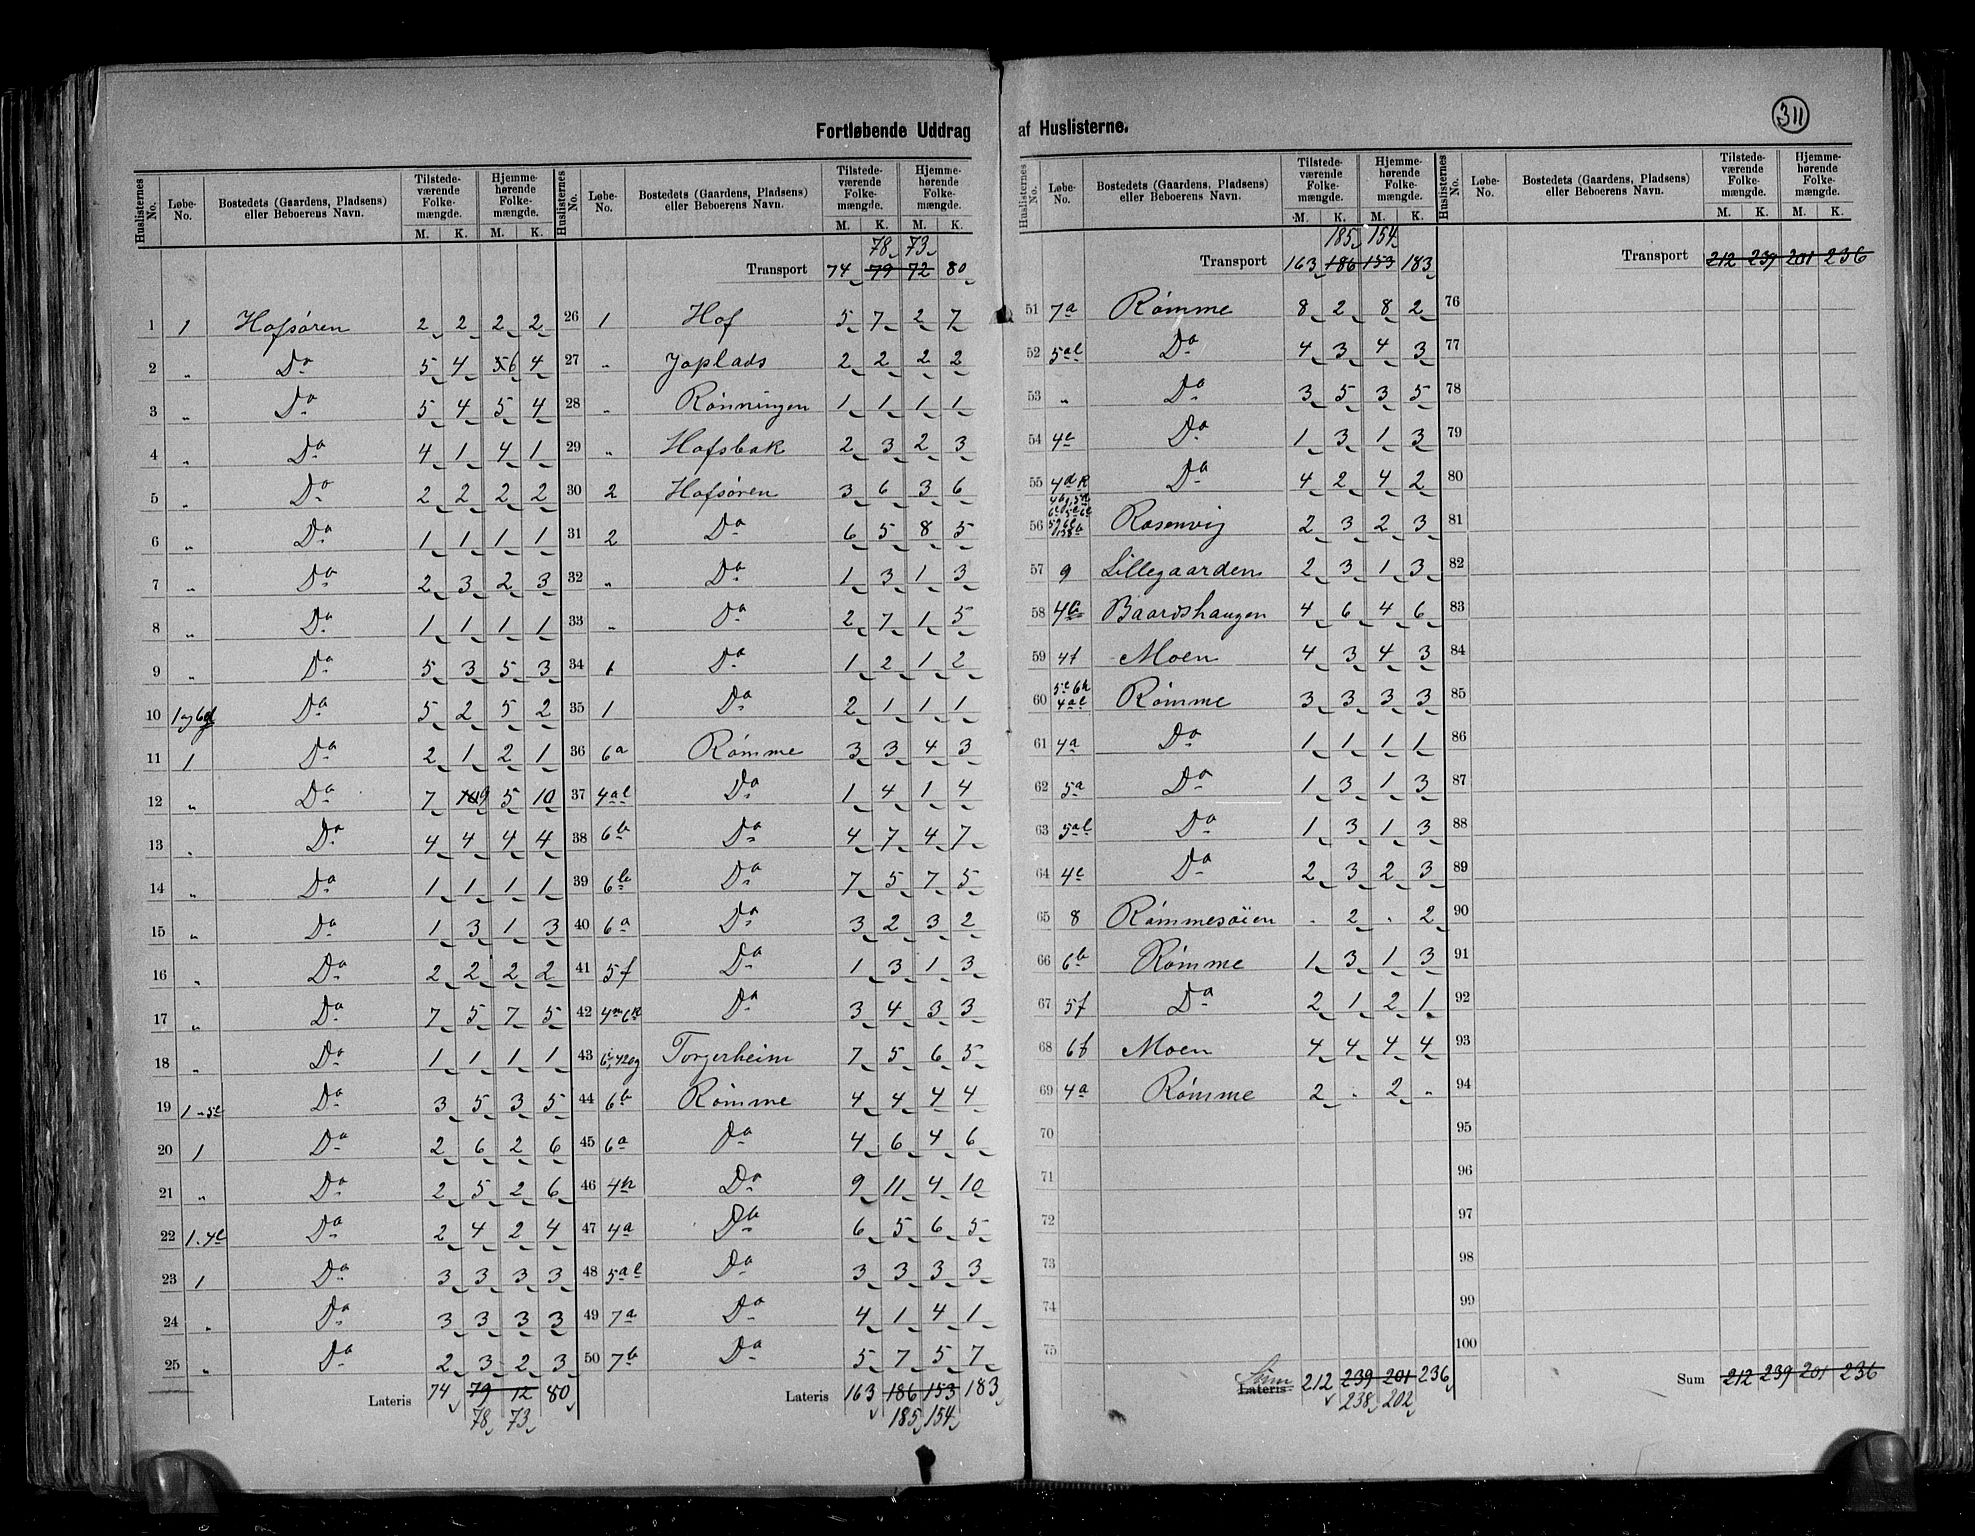 311
Fortløbende Uddrag af Huslisterne.
Huslisternes No. Løbe-No. Bostedets (Gaardens, Pladsens) eller Beboerens Navn. Tilstede-værende Folke-mængde. M. K. Hjemme-hørende Folke-mængde. M. K.
1 1 Hofsøren 2 2 2 2
2 " Do 5 4 5 6 4
3 " Do 5 4 5 4
4 " Do 4 1 4 1
5 " Do 2 2 2 2
6 " Do 1 1 1 1
7 " Do 2 3 2 3
8 " Do 1 1 1 1
9 " Do 5 3 5 3
10 1 og 6d Do 5 2 5 2
11 1 Do 2 1 2 1
12 " Do 7 10 9 5 10
13 " Do 4 4 4 4
14 " Do 1 1 1 1
15 " Do 1 3 1 3
16 " Do 2 2 2 2
17 " Do 7 5 7 5
18 " Do 1 1 1 1
19 1 " 5e Do 3 5 3 5
20 1 Do 2 6 2 6
21 " Do 2 5 2 6
22 1. 4e Do 2 4 2 4
23 1 Do 3 3 3 3
24 " Do 3 3 3 3
25 " Do 2 3 2 3
Lateris 74 79 72 80
78 73
Huslisternes No. Løbe-No. Bostedets (Gaardens, Pladsens) eller Beboerens Navn. Tilstede-værende Folke-mængde. M. K. Hjemme-hørende Folke-mængde. M. K.
78 73
Transport 74 79 72 80
26 1 Hof 5 7 2 7
27 " Joplads 2 2 2 2
28 " Rønningen 1 1 1 1
29 " Hofsbak 2 3 2 3
30 2 Hofsøren 3 6 3 6
31 2 Do 6 5 8 5
32 " Do 1 3 1 3
33 " Do 2 7 1 5
34 1 Do 1 2 1 2
35 1 Do 2 1 1 1
36 6a Rømme 3 3 4 3
37 4al Do 1 4 1 4
38 6b Do 4 7 4 7
39 Do 7 5 7 5
40 6a Do 3 2 3 2
41 5f Do 1 3 1 3
42 Do 3 4 3 3
43 Torgerheim 7 5 6 5
44 6b Rømme 4 4 4 4
45 6a Do 4 6 4 6
46 4h Do 9 11 4 10
47 4a Do 6 5 6 5
48 5al Do 3 3 3 3
49 7a Do 4 1 4 1
50 7b Do 5 7 5 7
Lateris 163 186 153 183
185 154
Huslisternes No. Løbe-No. Bostedets (Gaardens, Pladsens) eller Beboerens Navn. Tilstede-værende Folke-mængde. M. K. Hjemme-hørende Folke-mængde. M. K.
185 154
Transport 163 186 153 183
51 7a Rømme 8 2 8 2
52 5al Do 4 3 4 3
53 " Do 3 5 3 5
54 4e Do 1 3 1 3
55 4d Do 4 2 4 2
56 Rosenvig 2 3 2 3
57 9 Lillegaarden 2 3 1 3
58 Baardshaugen 4 6 4 6
59 4f Moen 4 3 4 3
60 Rømme 3 3 3 3
61 4a Do 1 1 1 1
62 5a Do 1 3 1 3
63 5al Do 1 3 1 3
64 4e Do 2 3 2 3
65 8 Rømmesøien . 2 . 2
66 6b Rømme 1 3 1 3
67 5f Do 2 1 2 1
68 6f Moen 4 4 4 4
69 4a Rømme 2 . 2 "
70
71
72
73
74
75
Sum Lateris 212 239 201 236
238 202
Huslisternes No. Løbe-No. Bostedets (Gaardens, Pladsens) eller Beboerens Navn. Tilstede-værende Folke-mængde. M. K. Hjemme-hørende Folke-mængde. M. K.
Transport 212 239 201 236
76
77
78
79
80
81
82
83
84
85
86
87
88
89
90
91
92
93
94
95
96
97
98
99
100
Sum 212 239 201 236